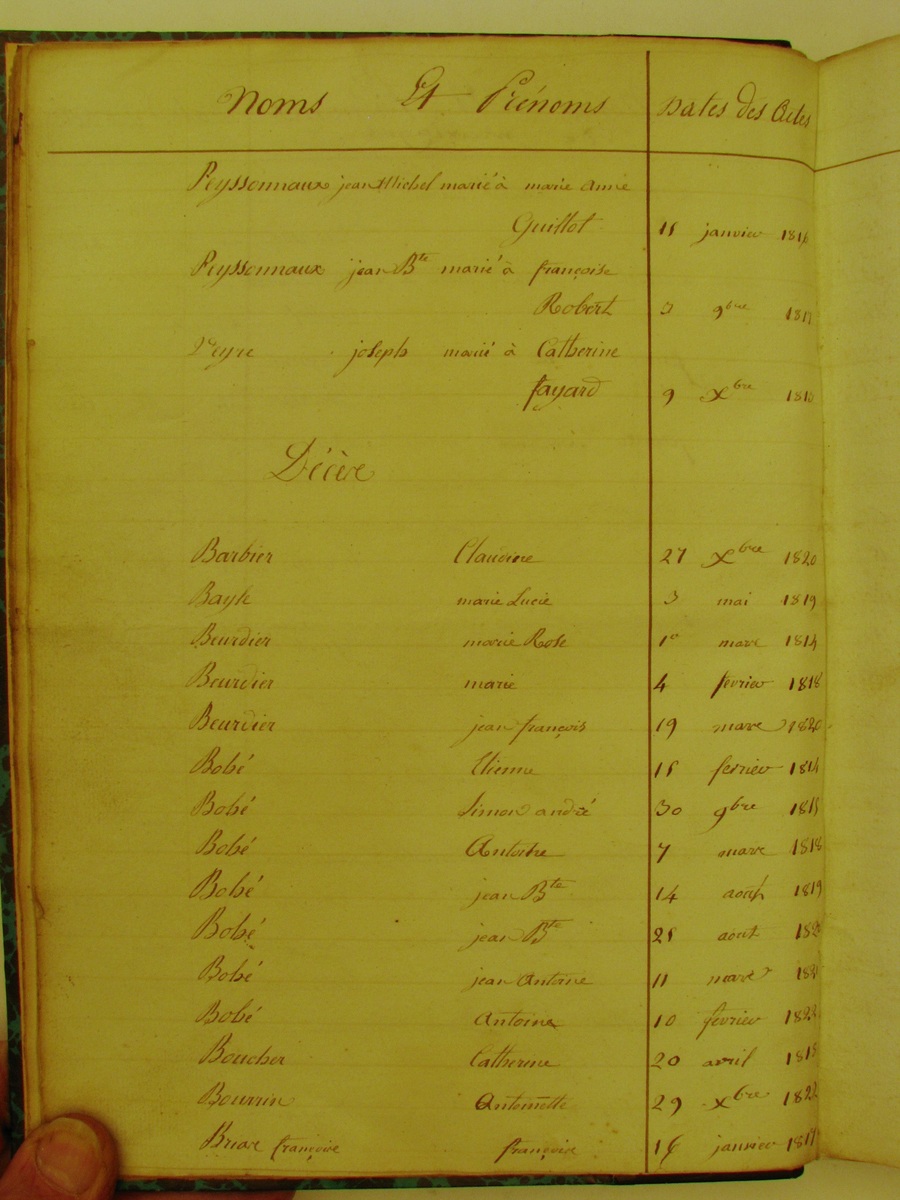 Noms Et Prénoms Dates des Actes
Peyssonnaux jean Michel marié à marie anne
Guillot 15 janvier 1816
Peyssonnaux jean Bte marié à françoise
Robert 3 9bre
Peyre joseph marié à Catherine
fayard 9 Xbre
Décès
Barbier Claudine 27 Xbre 1820
Bayle marie Lucie 3 mai 1819
Beurdier marie Rose 1er mars 1814
Beurdier marie 4 fevrier 1818
Beurdier jean françois 19 mars 1820
Bobé Etienne 15 fevrier 1814
Bobé Simon andré 30 9bre 1815
Bobé Antoine 7 mars 1818
Bobé jean Bte 14 août 1819
Bobé jean Bte 25 aout
Bobé jean Antoine 11 mars
Bobé Antoine 10 fevrier 1822
Boucher Catherine 20 avril 1818
Bourrin Antoinette 29 Xbre 1822
françoise françoise 16 janvier 1817